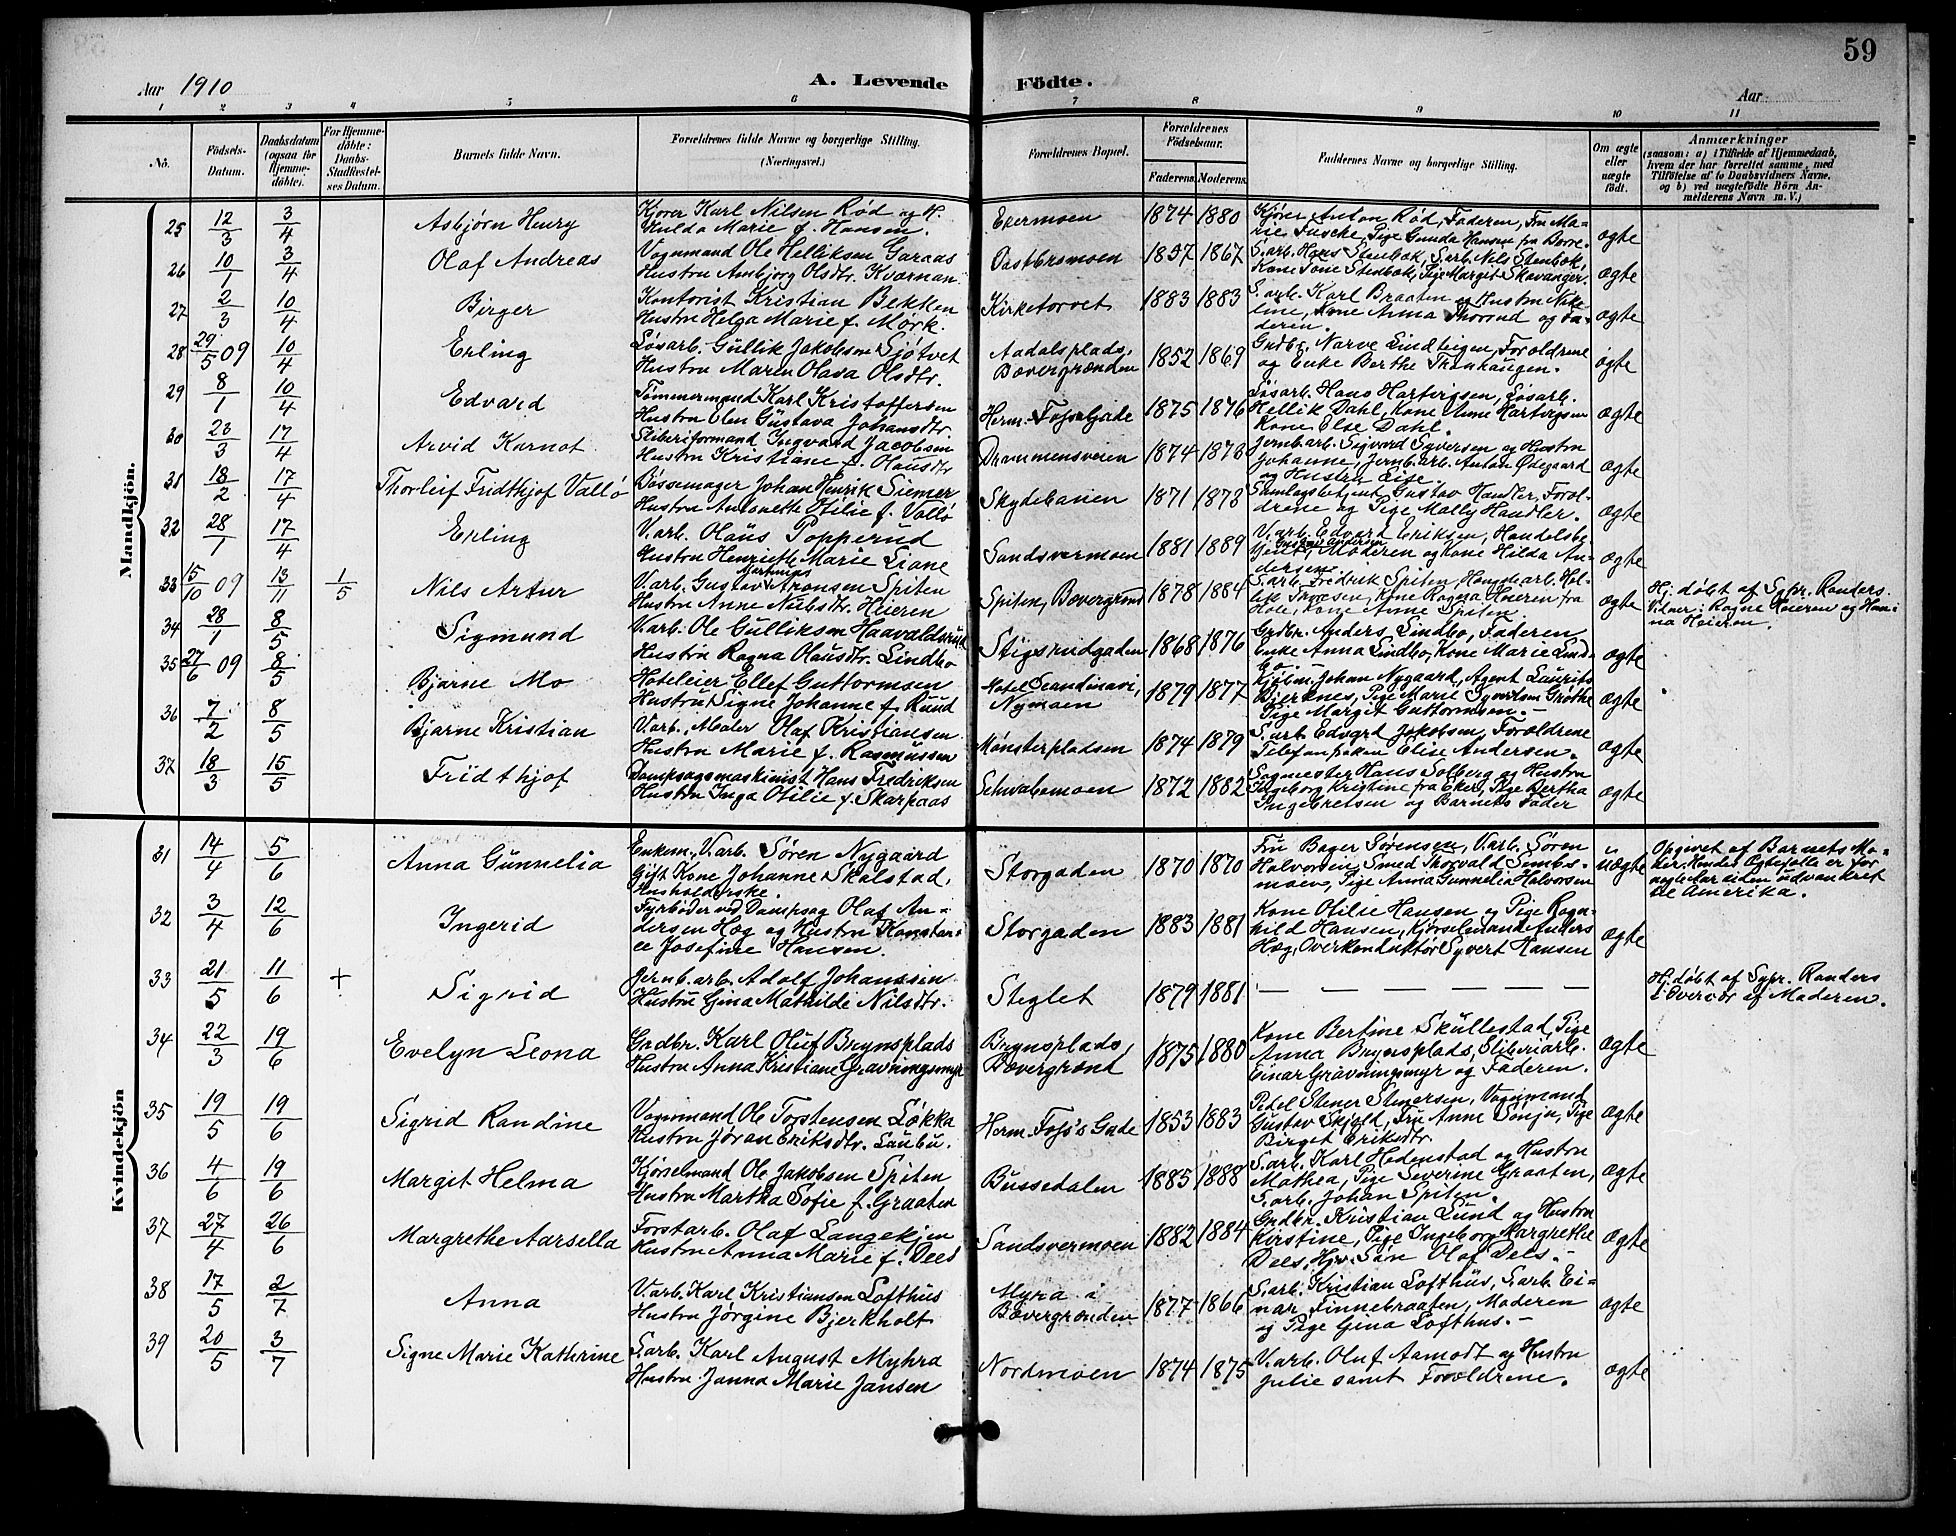 59
Aar 1910
A. Levende Födte.
Aar
1 2 3 4 5 6 7 8 9 10 11
No. Födsels-Datum. Daabsdatum (ogsaa for Hjemmedöbte). For Hjemmedöbte: Daabs-Stadfæstelses Datum. Barnets fulde Navn. Forældrenes fulde Navne og borgerlige Stilling. (Næringsvei.) Forældrenes Bopæl. Forældrenes Födselsaar. Faderens. Moderens. Faddernes Navne og borgerlige Stilling. Om ægte eller uægte födt. Anmærkninger (saasom: a) i Tilfælde af Hjemmedaab, hvem der har forrettet samme, med Tilföielse af to Daabsvidners Navne, og b) ved uægtefödte Börn Anmelderens Navn m. V.)
Mandkjön.
25 12/3 3/4 Asbjørn Henry Kjører Karl Nilsen Rød og H. Hulda Marie f. Hansen. Ekermoen 1874 1880 Kjører Anton Rød, Faderen, Fru Marie Fuske, Pige Gunda Hansen fra Borre. ægte
26 10/1 3/4 Olaf Andreas Vognmand Ole Helliksen Garaas Hustru Ambjørg Olsdtr. Kværnan 1857 1867 S.arb. Hans Stenbok, S.arb. Nils Stenbok, Kone Tone Stenbok, Pige Margit Skavanger. ægte
27 2/3 10/4 Birger Kontorist Kristian Bekken Hustru Helga Marie f. Mørk. Kirketorvet 1883 1883 S.arb. Karl Braaten og Hustru Nikoline, Kone Anna og Faderen. ægte
28 29/5 09 10/4 Erling Løsarb. Gullik Jakobsen Sjøtvet Hustru Maren Olava Olsdtr. Aadalsplads, Bævergrænden 1852 1869 Grdbr. Narve Lindteigen, Forældrene og Enke Berthe ægte
29 8/1 10/4 Edvard Tømmermand Karl Kristoffersen Hustru Olen Gustava Johansdtr. Herm. Foss's Gade 1875 1876 Løsarb. Hans Hartvigsen, Løsarb. Hellik Dahl, Kone Anne Hartvigsen Kone Else Dahl. ægte
30 23/3 17/4 Arvid Karnot Sliberiformand Ingvard Jacobsen Hustru Kristiane f. Hansdtr Drammensveien 1874 1873 Jernb.arb. Sigvard Syversen og Hustru Johanne, Jernb.arb. Anton Ødegaard og Hustru Lise. ægte
31 18/2 17/4 Thorleif Fridthjof Vallø Bøssemager Johan Henrik Siemer Hustru Antonette Otilie f. Vallø Skydebanen 1871 1873 Samlagsbetjent Gustav Handler, Forældrene og Pige Molly Handler. ægte
32 28/1 17/4 Erling V.arb. Olaus Popperud Hustru Henriette Marie Liane Sandsværmoen 1881 1889 V.arb. Edvard Eriksen, Handelsbetjent Gustav Andersen, Moderen og Kone Hilda Andersen. ægte
33 15/10 09 13/11 1/5 Nils Artur V.arb. Gustav Aronsen Spiten Hustru Anne Nilsdtr. Heieren Spiten, Bævergrænd 1878 1884 S.arb. Fredrik Spiten, Kone Ragna Heieren fra Hole, Kone Anne Spiten. ægte Hj. døbt af Sypr. Randers. Vidner: Ragne Heieren og Hanna Heieren.
34 28/1 8/5 Sigmund V.arb. Ole Gulliksen Haavaldsrud Hustru Ragna Olausdtr. Lindbo Stigsrudgaden 1868 1876 Grdbr. Anders Lindbo, Faderen, Enke Anna Lindbo, Kone Marie Lindbo. ægte
35 27/6 09 8/5 Bjarne Mo Hoteleier Ellef Guttormsen Hustru Signe Johanne f. Ruud Hotel Scandinavi, Nymoen 1879 1877 Kjøbm. Johan Nygaard, Agent Laurits Bjerknes, Pige Marie Syvertsen Grøthe Pige Margit Guttormsen. ægte
36 7/2 8/5 Bjarne Kristian V.arb., Maler Olaf Kristiansen Hustru Marie f. Rasmussen Mønsterpladsen 1874 1879 S.arb. Edvard Jakobsen, Forældrene Telefonfrøken Elise Andersen. ægte
37 18/3 15/5 Fridthjof Dampsagsmaskinist Hans Fredriksen Hustru Inga Otilie f. Skarpaas Schwabemoen 1872 1882 Sagmester Hans Solberg og Hustru Ingeborg Kristine fra Eker, Pige Bertha Ingebretsen og Barnets Fader ægte
Kvindekjön
31 14/4 5/6 Anna Gunnelia Enkem., V.arb. Søren Nygaard Gift Kone Johanne Skalstad, Husholderske. Storgaden 1870 1870 Fru Bager Sørensen, V.arb. Søren Halvorsen, Smed Thorvald Simbomoen, Pige Anna Gunnelia Halvorsen uægte Opgivet af Barnets Moder. Hendes Ægtefælle er for nogle Aar siden udvandret til Amerika.
32 3/4 12/6 Ingerid Fyrbøder ved Dampsag Olaf Andersen Hæg og Hustru Konstance Josefine Hansen. Storgaden 1883 1881 Kone Otilie Hansen og Pige Ragnhild Hansen, Kjørselsmand Anders Hæg, Overkonduktør Syvert Hansen ægte
33 21/5 11/6 + Sigrid Jernb.arb. Adolf Johanssen Hustru Gina Mathilde Nilsdtr. Steglet 1879 1881 — — — — — — — Hj. døbt af Sypr. Randers i Overvær af Moderen.
34 22/3 19/6 Evelyn Leona Grdbr. Karl Oluf Brynsplads Hustru Anna Kristiane Gravningsmyr Brynsplads, Bævergrænd 1875 1880 Kone Bertine Skullestad, Pige Anna Brynsplads, Sliberiarb. Einar Gravningsmyr og Faderen. ægte
35 19/5 19/6 Sigrid Randine Vognmand Ole Torstensen Løkka Hustru Jøran Eriksdtr. Laubu. Herm. Foss's Gade 1853 1883 Pedel Stener Stenersen, Vognmand Gustav Skjold, Fru Anne Sønju, Pige Birget Eriksdtr. ægte
36 4/6 19/6 Margit Helma Kjørselmand Ole Jakobsen Spiten Hustru Martha Sofie f. Graaten Bussedalen 1885 1888 S.arb. Karl Hedenstad og Hustru Mathea, Pige Severine Graaten, S.arb. Johan Spiten. ægte
37 27/4 26/6 Margrethe Aarsella Forstarb. Olaf Langekjen Hustru Anna Marie f. Dees Sandsværmoen 1882 1884 Grdbr. Kristian Lund og Hustru Kirstine, Pige Ingeborg Margrethe Dees, Hjv. Søn Olaf Dees. ægte
38 17/5 2/7 Anna V.arb. Karl Kristiansen Lofthus Hustru Jørgine Bjerkholt Myra i Bævergrænden 1877 1866 S.arb. Kristian Lofthus, S.arb. Einar Finnebraaten, Moderen og Pige Gina Lofthus. ægte
39 20/5 3/7 Signe Marie Kathrine S.arb. Karl August Myhra Hustru Janna Marie Jansen Nordmoen 1874 1875 V.arb. Oluf Aamodt og Hustru Julie samt Forældrene. ægte